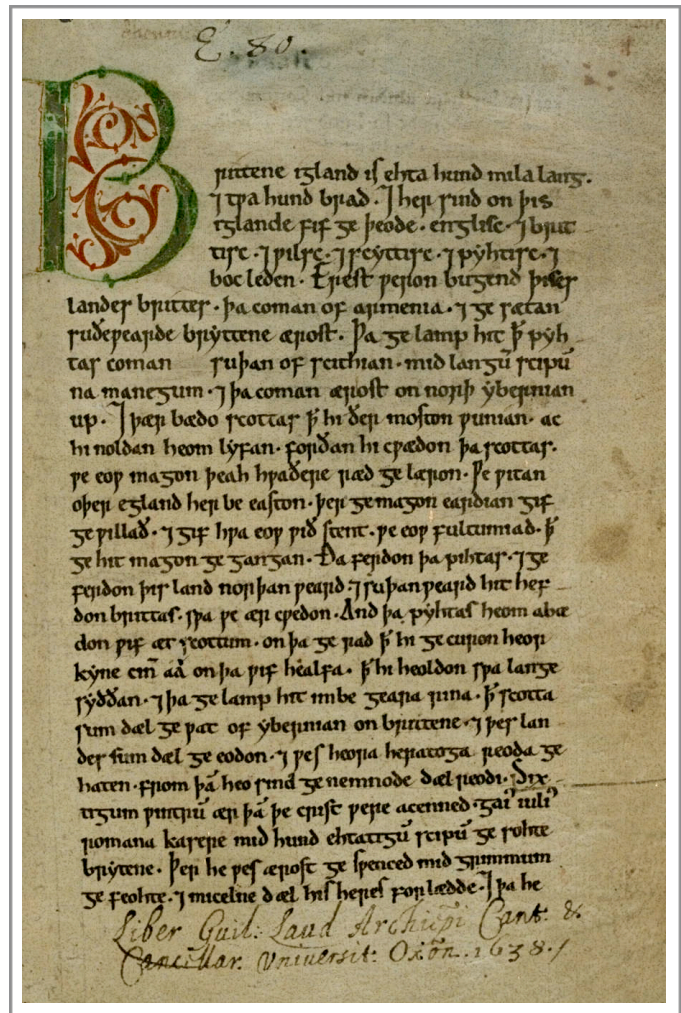 E. 80.
Brittene igland is ehta hund mila lang.
⁊ tƿa hund brad. ⁊ her sind on þis
iglande fif ge þeode. englisc. ⁊ brit
tisc. ⁊ ƿilsc. ⁊ scyttisc. ⁊ pyhtisc. ⁊
boc leden. Erest ƿeron bugend þises
landes brittes. þa coman of armenia. ⁊ ge sætan
suðeƿearde bryttene ærost. Þa ge lamp hit ꝥ pyh
tas coman suþan of scithian. mid langū scipū
na manegum. ⁊ þa coman ærost on norþ ybernian
up. ⁊ þær bædo scottas ꝥ hi ðer moston ƿunian. ac
hi noldan heom lyfan. forðan hi cƿædon þa scottas.
ƿe eoƿ magon þeah hƿaðere ræd ge læron. Ƿe ƿitan
oþer egland her be easton. þer ge magon eardian gif
ge ƿillað. ⁊ gif hƿa eoƿ ƿið stent. ƿe eoƿ fultumiað. ꝥ
ge hit magon ge gangan. Ða ferdon þa pihtas. ⁊ ge
ferdon þis land norþan ƿeard. ⁊ suþan ƿeard hit hef
don brittas. sƿa ƿe ær cƿedon. And þa pyhtas heom abæ
don ƿif æt scottum. on þa ge rad ꝥ hi ge curon heor
kyne cīn aā on þa ƿif healfa. ꝥ hi heoldon sƿa lange
syððan. ⁊ þa ge lamp hit imbe geara rina. ꝥ scotta
sum dæl ge ƿat of ybernian on brittene. ⁊ þes lan
des sum dæl ge eodon. ⁊ ƿes heora heratoga reoda ge
haten. from þā heo sind ge nemnode dæl reodi. Six
tigum ƿintrū ær þā þe crist ƿere acenned. gai' iuli'
romana kasere mid hund ehtatigū scipū ge sohte
brytene. Þer he ƿes ærost ge sƿenced mid grimmum
ge feohte. ⁊ micelne dæl his heres forlædde. ⁊ þa he
Liber Guil: Laud Archiepī Cant: &
Cancillar. Vniversit: Oxōn. 1638. /